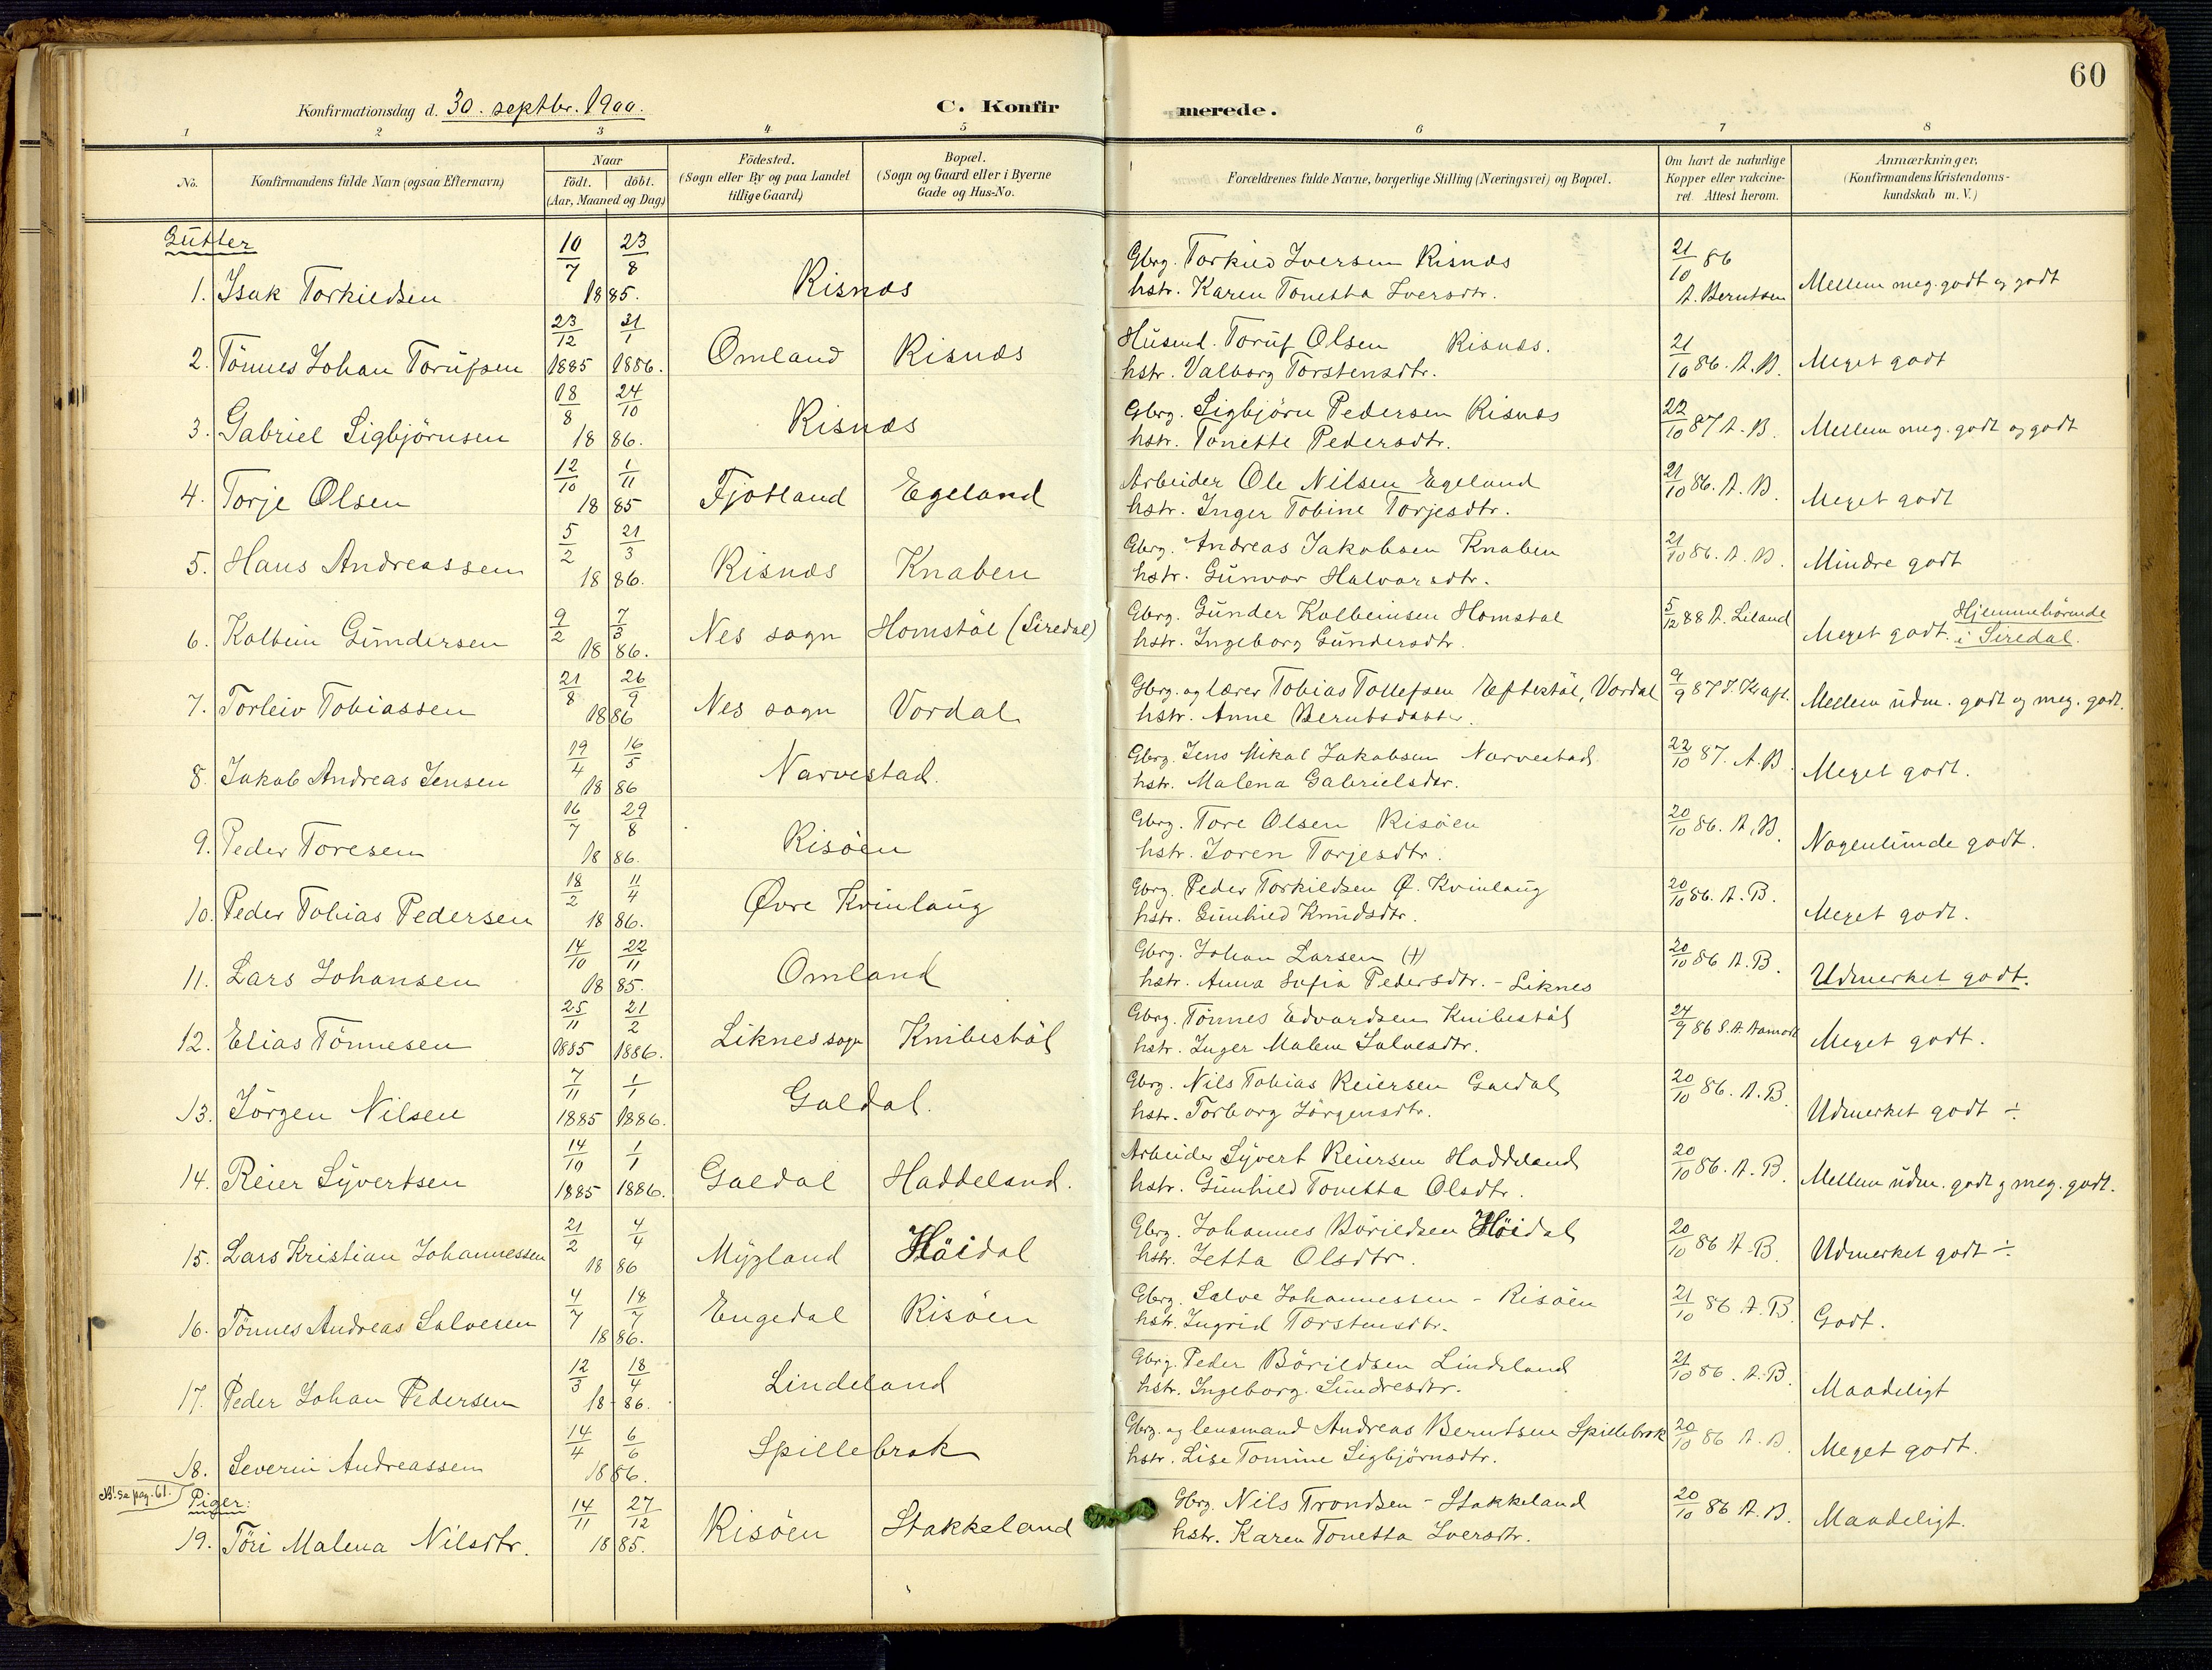 60
Konfirmationsdag d. 30. septbr. 1900.
C. Konfirmerede.
1 2 3 4 5 6 7 8
No.
Konfirmandens fulde Navn (ogsaa Efternavn)
Naar
födt. döbt.
(Aar, Maaned og Dag)
Födested.
(Sogn eller By og paa Landet
tillige Gaard)
Bopæl.
(Sogn og Gaard eller i Byerne
Gade og Hus-No.
Forældrenes fulde Navne, borgerlige Stilling (Næringsvei) og Bopæl.
Om havt de naturlige
Kopper eller vakcine-
ret. Attest herom.
Anmærkninger,
(Konfirmandens Kristendoms-
kundskab m.V.)
Gutter
1. Isak Torkildsen 10/7 23/8 1885. Risnæs
Gbrg. Torkild Iversen Risnæs
hstr. Karen Tonetta Iversdtr.
21/10 86 A. Berntsen Mellem meg. godt og godt
2. Tönnes Johan Torufsen 23/12 1885 31/1 1886. Omland Risnæs
Husmd. Toruf Olsen Risnæs.
hstr. Valborg Torstensdtr.
21/10 86. A. B. Meget godt
3. Gabriel Sigbjörnsen 18/8 24/10 1886. Risnæs
Gbrg. Sigbjörn Pedersen Risnæs
hstr. Tonette Pedersdtr.
22/10 87 A. B. Mellem meg. godt og godt
4. Torje Olsen 12/10 1/11 1885 Fjotland Egeland
Arbeider Ole Nilsen Egeland
hstr. Inger Tobine Torjesdtr.
21/10 86. A. B. Meget godt
5. Hans Andreassen 5/2 21/3 1886. Risnæs Knaben
Gbrg. Andreas Jakobsen Knaben
hstr. Gunvor Halvorsdtr.
21/10 86. A. B. Mindre godt
6. Kolbein Gundersen 9/2 7/3 1886. Nes sogn Homstöl (Siredal)
Gbrg. Gunder Kolbeinsen Homstal
hstr. Ingeborg Gundersdtr.
5/12 88 A. Liland Meget godt. Hjemmehörende
i Siredal.
7. Torleiv Tobiassen 21/8 26/9 1886 Nes sogn Vordal
Gbrg. og lærer Tobias Tollefsen Eftestöl, Vordal
hstr. Anne Berntsdatter.
9/9 87 J. Kraft. Mellem udm. godt og meg. godt.
8. Jakob Andreas Jensen 19/4 16/5 1886 Narvestad.
Gbrg. Jens Mikal Jakobsen Narvestad
hstr. Malena Gabrielsdtr.
22/10 87. A. B. Meget godt.
9. Peder Toresen 16/7 29/8 1886. Risöen
Gbrg. Tore Olsen Risöen
hstr. Joren Torjesdtr.
20/10 86. A. B. Nogenlunde godt.
10. Peder Tobias Pedersen 18/2 11/4 1886. Øvre Kvinlaug
Gbrg. Peder Torkildsen Ø. Kvinlaug
hstr. Gunhild Knudsdtr.
20/10 86. A. B. Meget godt.
11. Lars Johansen 14/10 22/11 1885. Omland
Gbrg. Johan Larsen (†)
hstr. Anna Sofia Pedersdtr. - Liknes
20/10 86 A. B. Udmerket godt.
12. Elias Tönnesen 25/11 1885 21/2 1886. Liknes sogn Knibestöl
Gbrg. Tönnes Edvardsen Knibestöl
hstr. Inger Malene Salvesdtr.
24/9 86 S. A. Aamodt Meget godt.
13. Jörgen Nilsen 7/11 1885 1/1 1886. Galdal.
Gbrg. Nils Tobias Reiersen Galdal
hstr. Torborg Jörgensdtr.
20/10 86. A. B. Udmerket godt ÷
14. Reier Syvertsen 14/10 1885 1/1 1886. Galdal Haddeland.
Arbeider Syvert Reiersen Haddeland
hstr. Gunhild Tonetta Olsdtr.
20/10 86. A. B. Mellem udm. godt og meg. godt.
15. Lars Kristian Johannessen 21/2 4/4 1886 Mygland Höidal
Gbrg. Johannes Börildsen Höidal
hstr. Jetta Olsdtr.
20/10 86 A. B. Udmerket godt ÷.
16. Tönnes Andreas Salvesen 4/7 18/7 1886. Engedal Risöen
Gbrg. Salve Johannessen - Risöen
hstr. Ingrid Torstensdtr.
21/10 86 A. B. Godt.
17. Peder Johan Pedersen 12/3 18/4 18-86. Lindeland
Gbrg. Peder Börildsen Lindeland
hstr. Ingeborg Sundresdtr.
21/10 86. A. B. Maadeligt
18. Severin Andreassen 14/4 6/6 1886. Spillebrok
Gbrg. og lensmand Andreas Berntsen Spillebrok
hstr. Lise Tomine Sigbjörnsdtr.
20/10 86 A. B. Meget godt.
NB! se pag. 61.
Piger:
19. Töri Malena Nilsdtr. 14/11 27/12 1885. Risöen Stakkeland
Gbrg. Nils Trondsen - Stakkeland
hstr. Karen Tonetta Iversdtr.
20/10 86 A. B. Maadeligt.